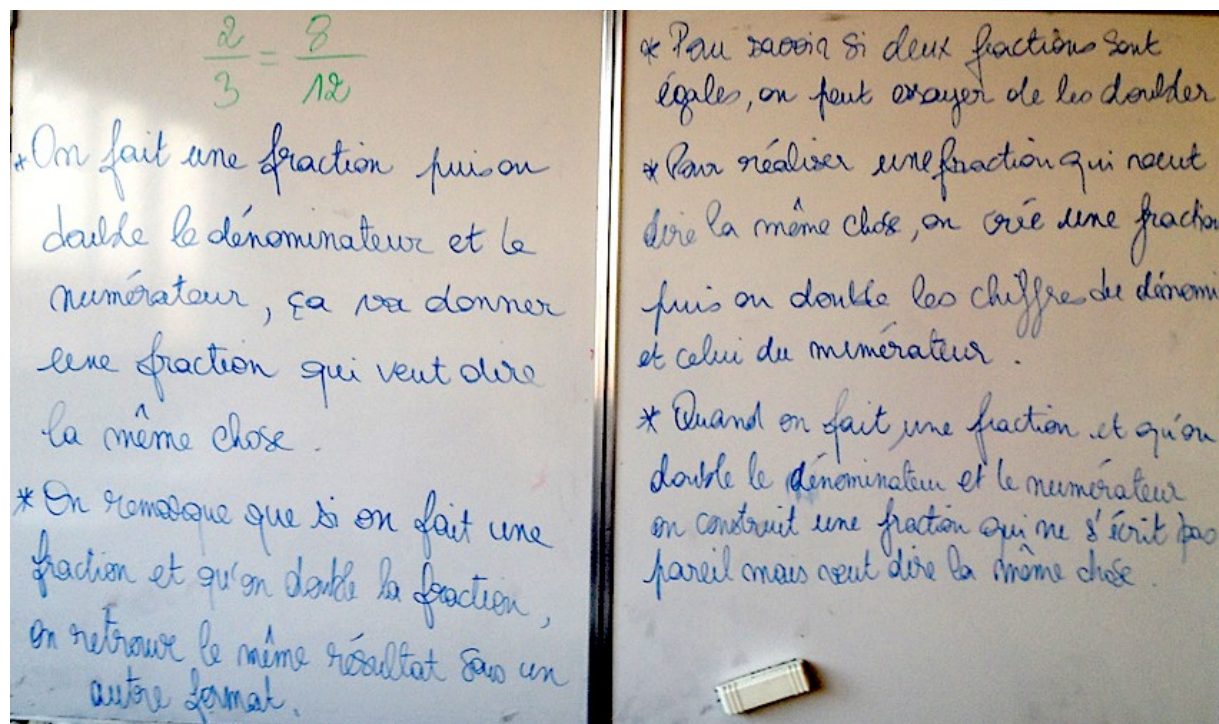 2/3 = 8/12
* On fait une fraction puis on
double le dénominateur et le
numérateur, ça va donner
une fraction qui veut dire
la même chose.
* On remarque que si on fait une
fraction et qu'on double la fraction,
on retrouve le même résultat sous un
autre format.
* Pour savoir si deux fractions sont
égales, on peut essayer de les doubler
* Pour réaliser une fraction qui veut
dire la même chose, on crée une fraction
puis on double les chiffres du dénomi
et celui du numérateur.
* Quand on fait une fraction et qu'on
double le dénominateur et le numérateur
on construit une fraction qui ne s'écrit pas
pareil mais veut dire la même chose.